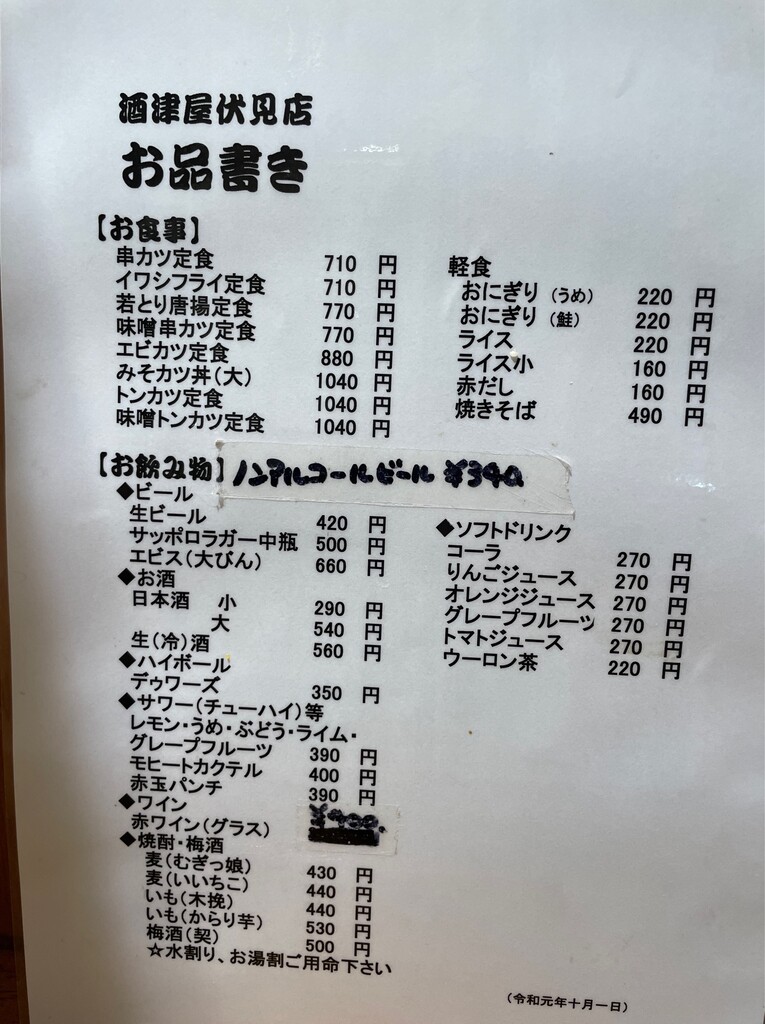 酒津屋伏見店
お品書き
【お食事】
串カツ定食 710 円
イワシフライ定食 710 円
若とり唐揚定食 770 円
味噌串カツ定食 770 円
エビカツ定食 880 円
みそカツ丼(大) 1040 円
トンカツ定食 1040 円
味噌トンカツ定食 1040 円
軽食
おにぎり(うめ) 220 円
おにぎり(鮭) 220 円
ライス 220 円
ライス小 160 円
赤だし 160 円
焼きそば 490 円
【お飲み物】ノンアルコールビール ¥340
◆ビール
生ビール 420 円
サッポロラガー中瓶 500 円
エビス(大びん) 660 円
◆お酒
日本酒 小 290 円
大 540 円
生(冷)酒 560 円
◆ハイボール
デゥワーズ 350 円
◆サワー(チューハイ)等
レモン・うめ・ぶどう・ライム・
グレープフルーツ 390 円
モヒートカクテル 400 円
赤玉パンチ 390 円
◆ワイン
赤ワイン(グラス)
◆焼酎・梅酒
麦(むぎっ娘) 430 円
麦(いいちこ) 440 円
いも(木挽) 440 円
いも(からり芋) 530 円
梅酒(契) 500 円
☆水割り、お湯割ご用命下さい
◆ソフトドリンク
コーラ 270 円
りんごジュース 270 円
オレンジジュース 270 円
グレープフルーツ 270 円
トマトジュース 270 円
ウーロン茶 220 円
(令和元年十月一日)